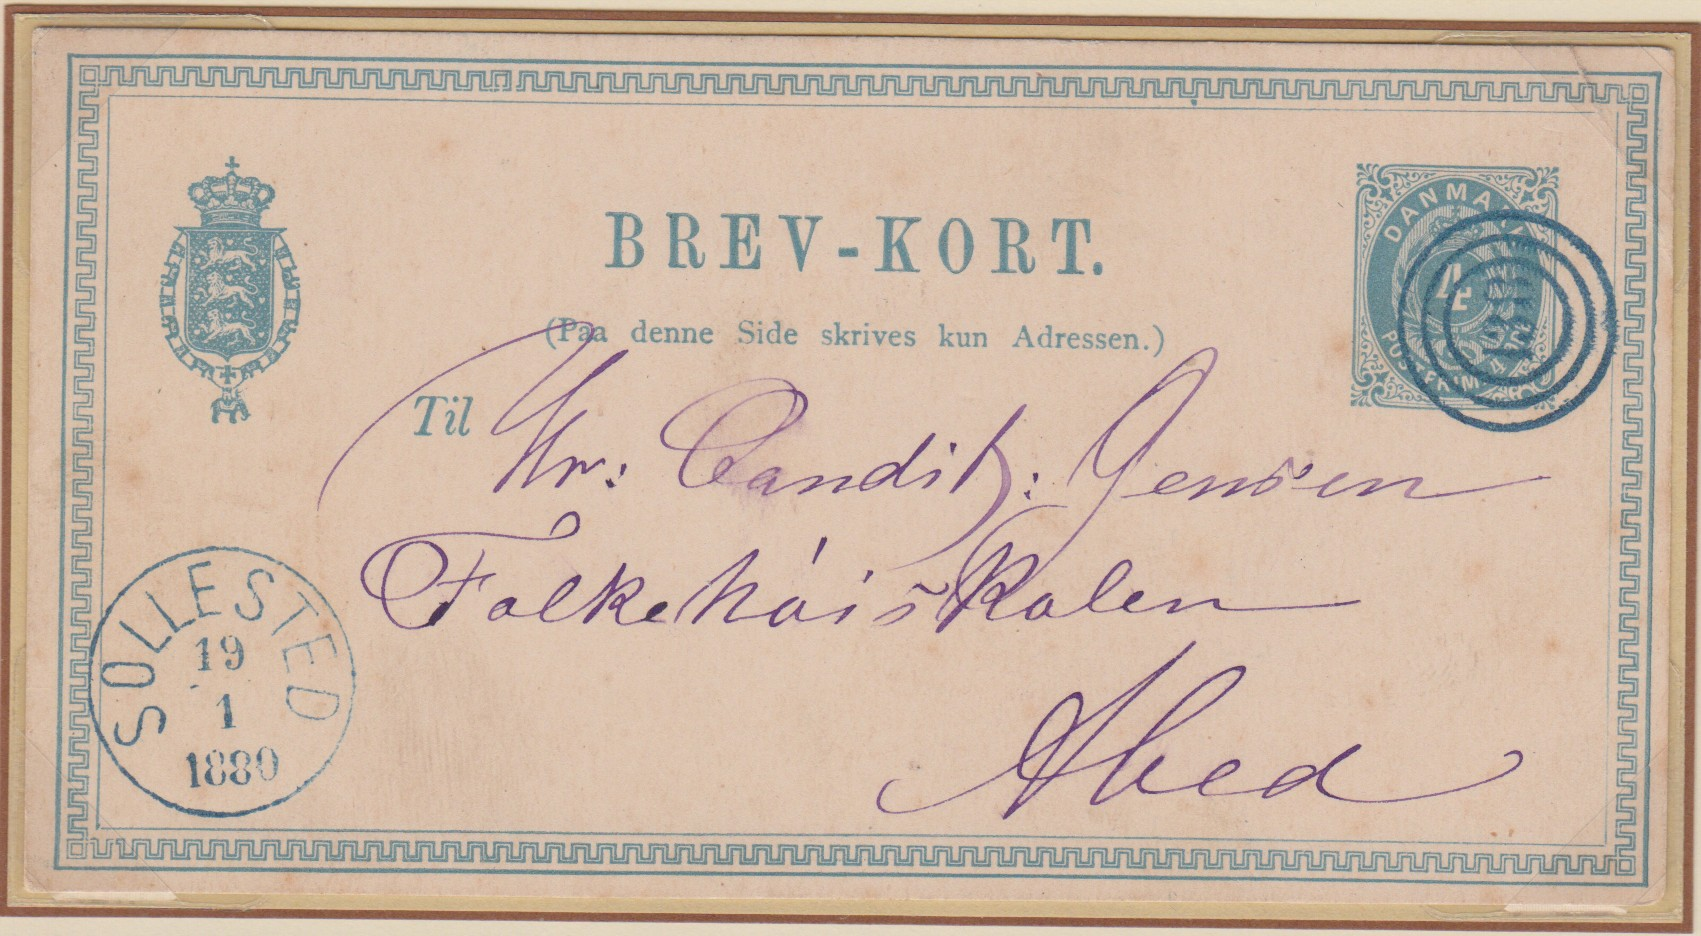 BREV-KORT.
(Paa denne Side skrives kun Adressen.)
DANMARK
4
POSTFRIM
Til
Hr: Candit: Jensen
Folkehöiskolen
Abed
SOLLESTED
19
1
1880